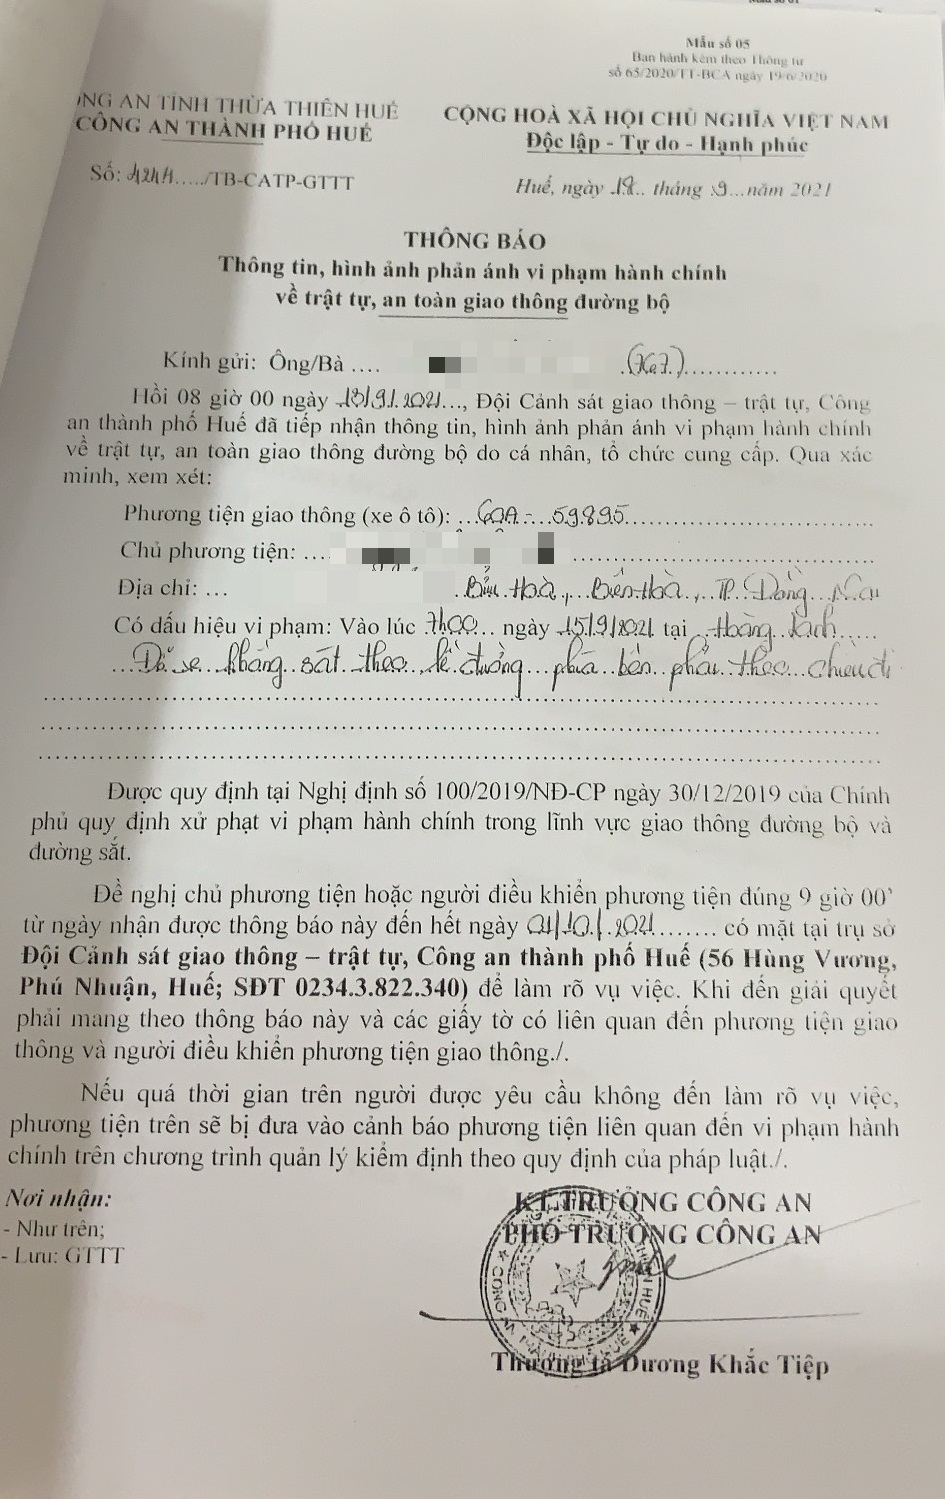 Mẫu số 05
Ban hành kèm theo Thông tư
số 65/2020/TT-BCA ngày 19/6/2020
ÔNG AN TỈNH THỪA THIÊN HUẾ
CÔNG AN THÀNH PHỐ HUẾ
CỘNG HOÀ XÃ HỘI CHỦ NGHĨA VIỆT NAM
Độc lập - Tự do - Hạnh phúc
Số: ...../TB-CATP-GTTT
Huế, ngày 18.. tháng 9...năm 2021
THÔNG BÁO
Thông tin, hình ảnh phản ánh vi phạm hành chính
về trật tự, an toàn giao thông đường bộ
Kính gửi: Ông/Bà ....
Hồi 08 giờ 00 ngày 18/9/.2021..., Đội Cảnh sát giao thông – trật tự, Công
an thành phố Huế đã tiếp nhận thông tin, hình ảnh phản ánh vi phạm hành chính
về trật tự, an toàn giao thông đường bộ do cá nhân, tổ chức cung cấp. Qua xác
minh, xem xét:
Phương tiện giao thông (xe ô tô): 60A - 598.95
Chủ phương tiện: ...
Địa chỉ: ... Bửu Hoà, Biên Hoà, TP. Đồng Nai
Có dấu hiệu vi phạm: Vào lúc 7h00... ngày 15/9/2021 tại Hoàng Lanh
Đỗ xe không sát theo lề đường phía bên phải theo chiều đi
Được quy định tại Nghị định số 100/2019/NĐ-CP ngày 30/12/2019 của Chính
phủ quy định xử phạt vi phạm hành chính trong lĩnh vực giao thông đường bộ và
đường sắt.
Đề nghị chủ phương tiện hoặc người điều khiển phương tiện đúng 9 giờ 00'
từ ngày nhận được thông báo này đến hết ngày 01/10/.2021........ có mặt tại trụ sở
Đội Cảnh sát giao thông – trật tự, Công an thành phố Huế (56 Hùng Vương,
Phú Nhuận, Huế; SĐT 0234.3.822.340) để làm rõ vụ việc. Khi đến giải quyết
phải mang theo thông báo này và các giấy tờ có liên quan đến phương tiện giao
thông và người điều khiển phương tiện giao thông./.
Nếu quá thời gian trên người được yêu cầu không đến làm rõ vụ việc,
phương tiện trên sẽ bị đưa vào cảnh báo phương tiện liên quan đến vi phạm hành
chính trên chương trình quản lý kiểm định theo quy định của pháp luật./.
Nơi nhận:
- Như trên;
- Lưu: GTTT
KT.TRƯỞNG CÔNG AN
PHÓ TRƯỞNG CÔNG AN
Thượng tá Dương Khắc Tiệp